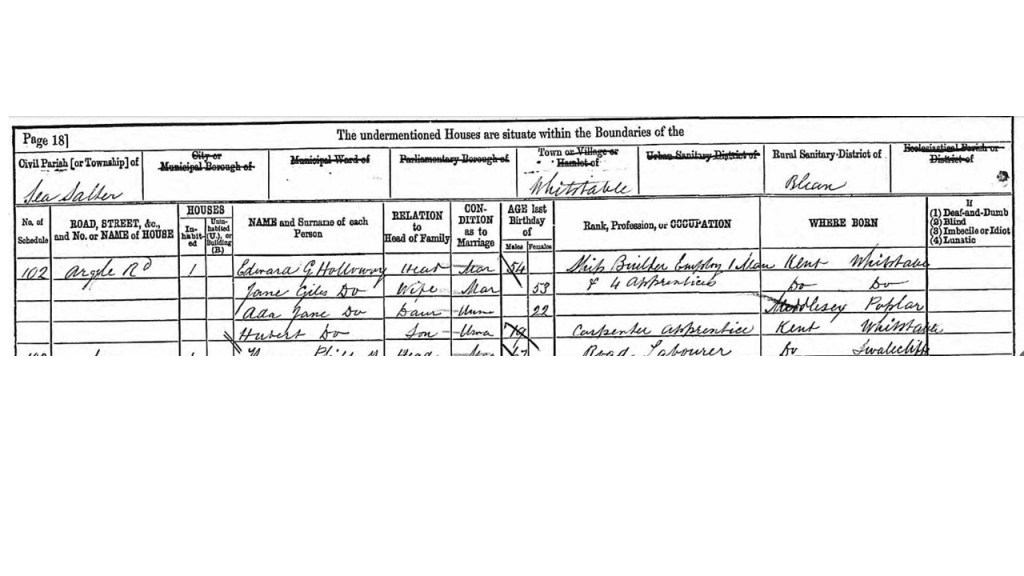 Page 18]
The undermentioned Houses are situate within the Boundaries of the
Civil Parish [or Township] of
City or Municipal Borough of
Municipal Ward of
Parliamentary Borough of
Town or Village or Hamlet of
Urban Sanitary District of
Rural Sanitary-District of
Ecclesiastical Parish or District of
Sea Salter
Whitstable
Blean
No. of Schedule
ROAD, STREET, &c., and No. or NAME of HOUSE
HOUSES
In-habit-ed
Unin-habited (U.), or Building (B.)
NAME and Surname of each Person
RELATION to Head of Family
CON-DITION as to Marriage
AGE last Birthday of
Males
Females
Rank, Profession, or OCCUPATION
WHERE BORN
If
(1) Deaf-and-Dumb
(2) Blind
(3) Imbecile or Idiot
(4) Lunatic
102 Argyle Rd 1 Edward G Holloway Head Mar 54 Ship Builder Employ 1 Man Kent Whitstable
Jane Giles Do Wife Mar 53 & 4 Apprentices Do Do
Ada Jane Do Daur Unm 22 Middlesex Poplar
Hubert Do Son Unm 19 Carpenter Apprentice Kent Whitstable
Head Road Labourer Do Swalecliffe